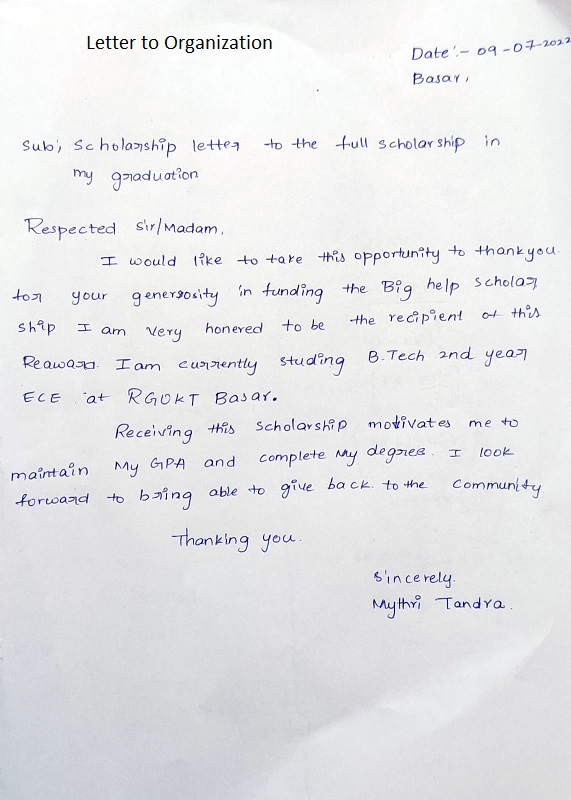 Letter to Organization
Date :- 09-07-2022
Basar,
Sub; Scholarship letter to the full scholarship in
my graduation
Respected Sir/Madam,
I would like to take this opportunity to thankyou
for your generosity in funding the Big help scholar
ship I am very honered to be the recipient of this
Reaward. I am currently studing B.Tech 2nd year
ECE at RGUKT Basar.
Receiving this Scholarship motivates me to
maintain My GPA and complete My degree. I look
forward to bring able to give back to the community
Thanking you.
Sincerely.
Mythri Tandra.